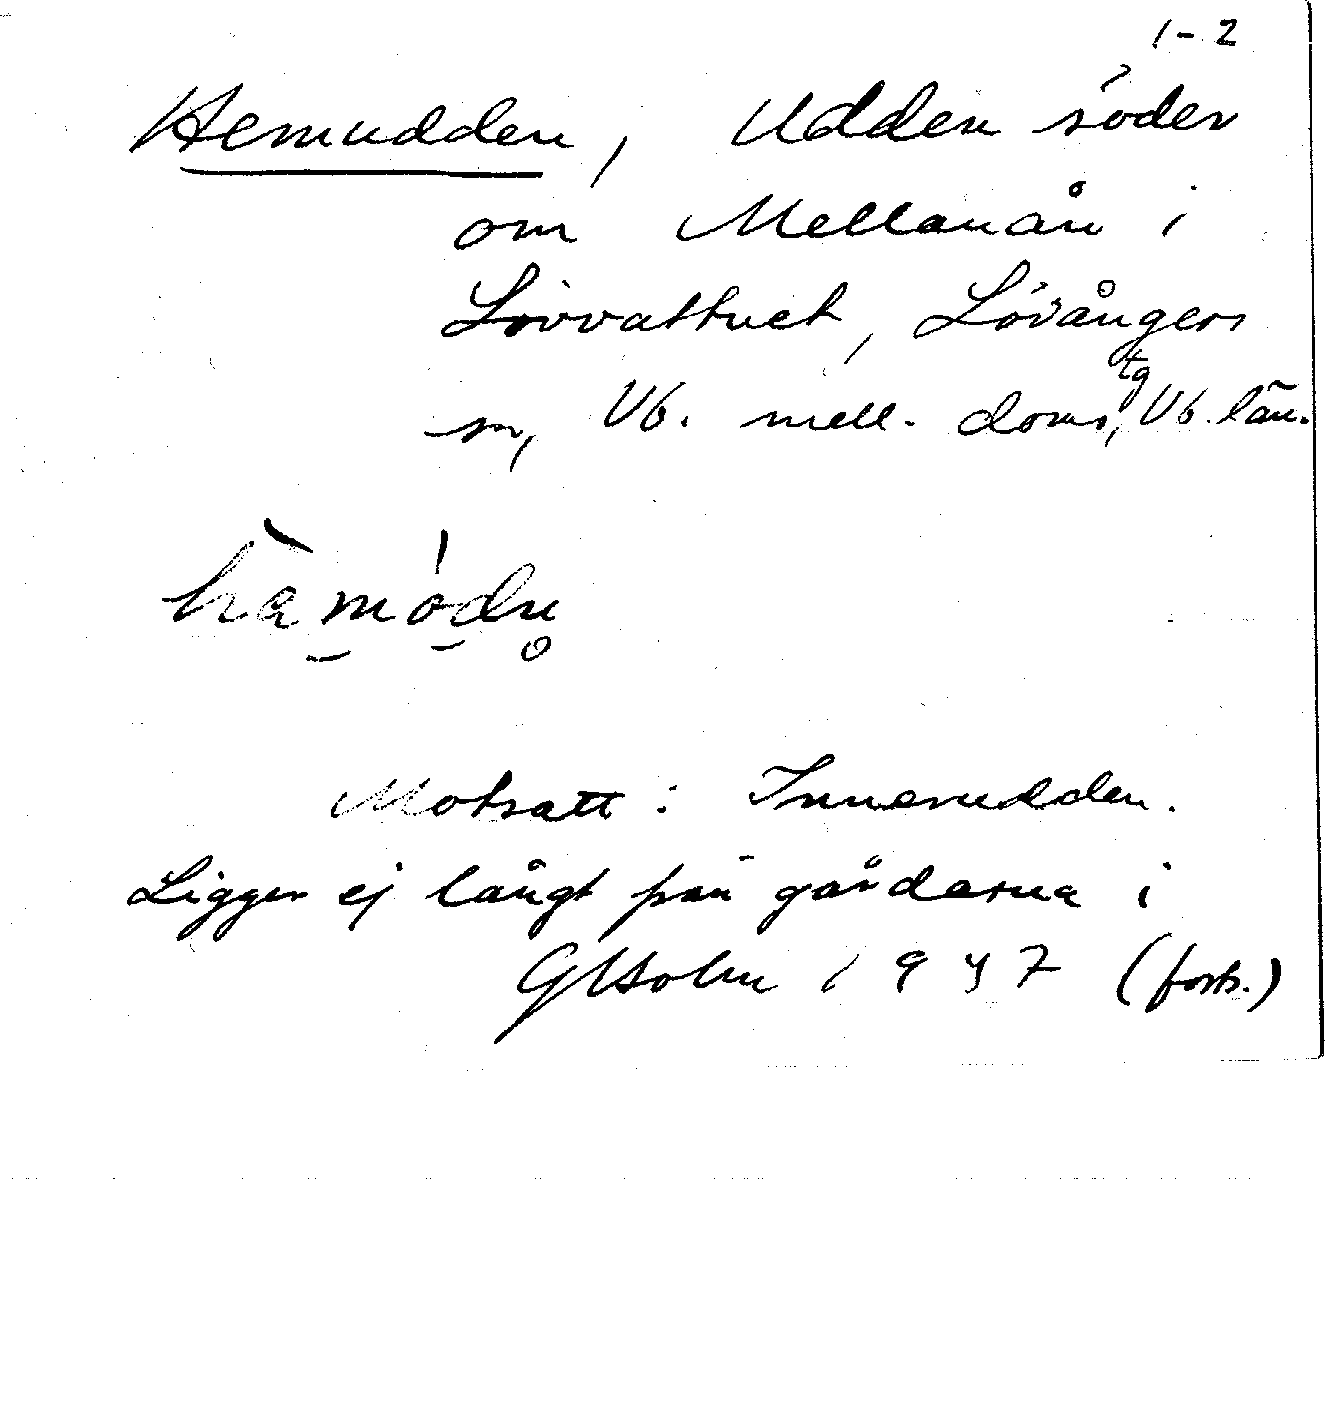 1-2
Hemudden, Udden söder
om Mellanån i
Lövvattnet, Lövångers
sn, Vb. mell. doms
tg
, Vb. län.
Motsatt: Innerudden.
Ligger ej långt från gårdarna i
GHolm 1947 (forts.)